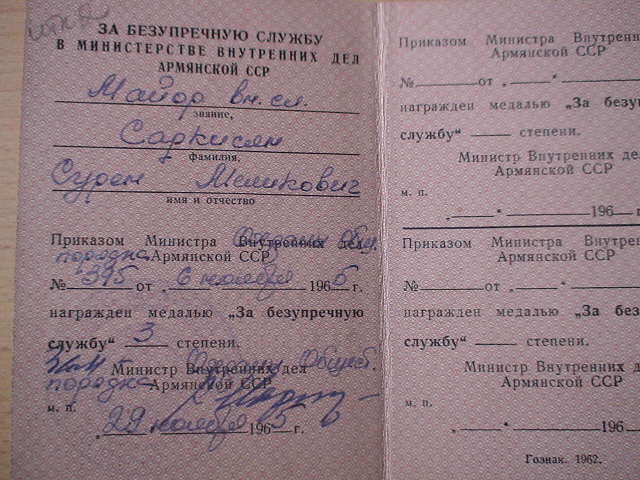 ЗА БЕЗУПРЕЧНУЮ СЛУЖБУ
В МИНИСТЕРСТВЕ ВНУТРЕННИХ ДЕЛ
АРМЯНСКОЙ ССР
Майор вн. сл.
звание,
Саркисян
фамилия,
Сурен Меликович
имя и отчество
Приказом Министра Внутренних дел
Охраны Общ.
порядка Армянской ССР
№ 395 от „6 ноября 1965 г.
награжден медалью „За безупречную
службу“ 3 степени.
Министр Внутренних дел
Охраны Обществ.
порядка Армянской ССР
м. п.
„29 ноября 1965 г.
Приказом Министра Внутрен
Армянской ССР
№ от „ “
награжден медалью „За безу
службу“ степени.
Министр Внутренних де
Армянской ССР
м. п.
„ “ 196 г
Приказом Министра Внутре
Армянской ССР
№ от „ “
награжден медалью „За бе
службу“ степени.
Министр Внутренних д
Армянской ССР
м. п.
„ “ 196
Гознак. 1962.